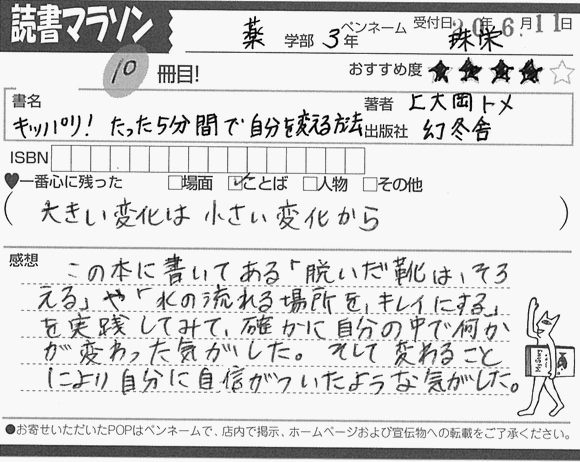 読書マラソン
薬 学部 3年 ペンネーム 珠栄 受付日20年6月11日
10 冊目! おすすめ度 ★★★★☆
書名 キッパリ! たった5分間で自分を変える方法
著者 上大岡トメ
出版社 幻冬舎
ISBN
♥一番心に残った □場面 ☑ことば □人物 □その他
(大きい変化は小さい変化から)
感想
この本に書いてある「脱いだ靴は、そろ
える」や「水の流れる場所を、キレイにする」
を実践してみて、確かに自分の中で何か
が変わった気がした。そして変わること
により自分に自信がついたような気がした。
●お寄せいただいたPOPはペンネームで、店内で掲示、ホームページおよび宣伝物への転載をご了承ください。